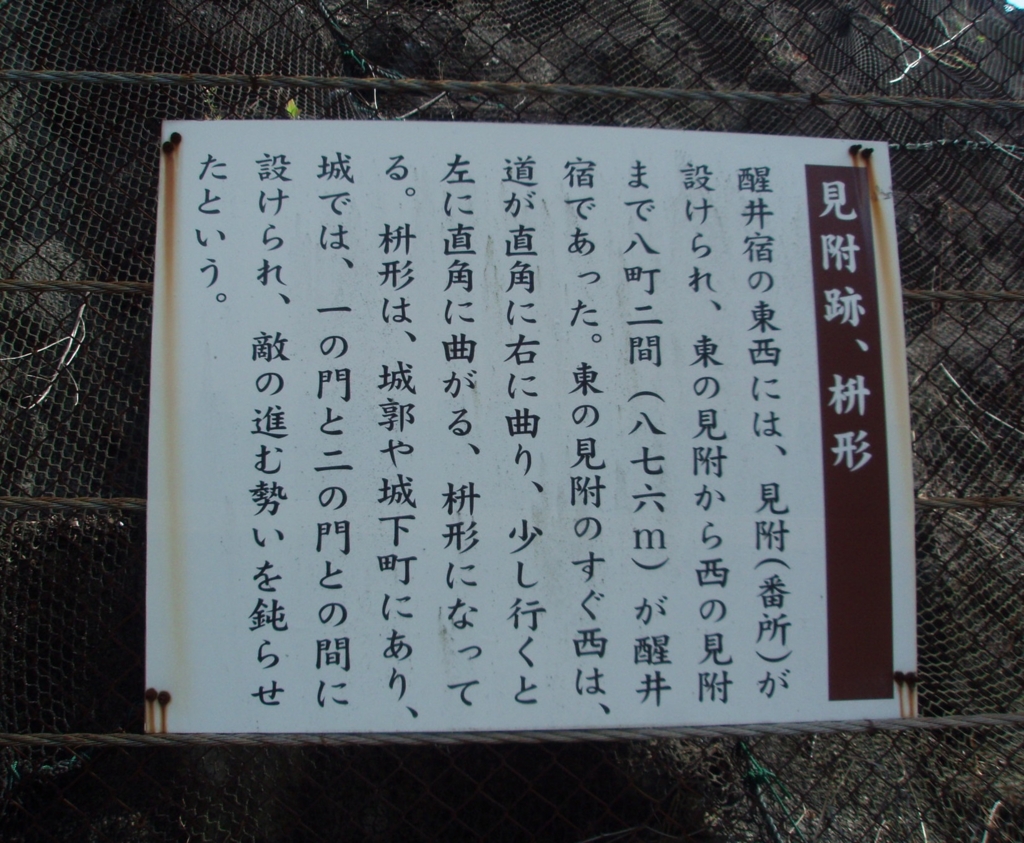 見附跡、枡形
醒井宿の東西には、見附(番所)が
設けられ、東の見附から西の見附
まで八町二間(八七六m)が醒井
宿であった。東の見附のすぐ西は、
道が直角に右に曲り、少し行くと
左に直角に曲がる、枡形になって
る。枡形は、城郭や城下町にあり、
城では、一の門と二の門との間に
設けられ、敵の進む勢いを鈍らせ
たという。